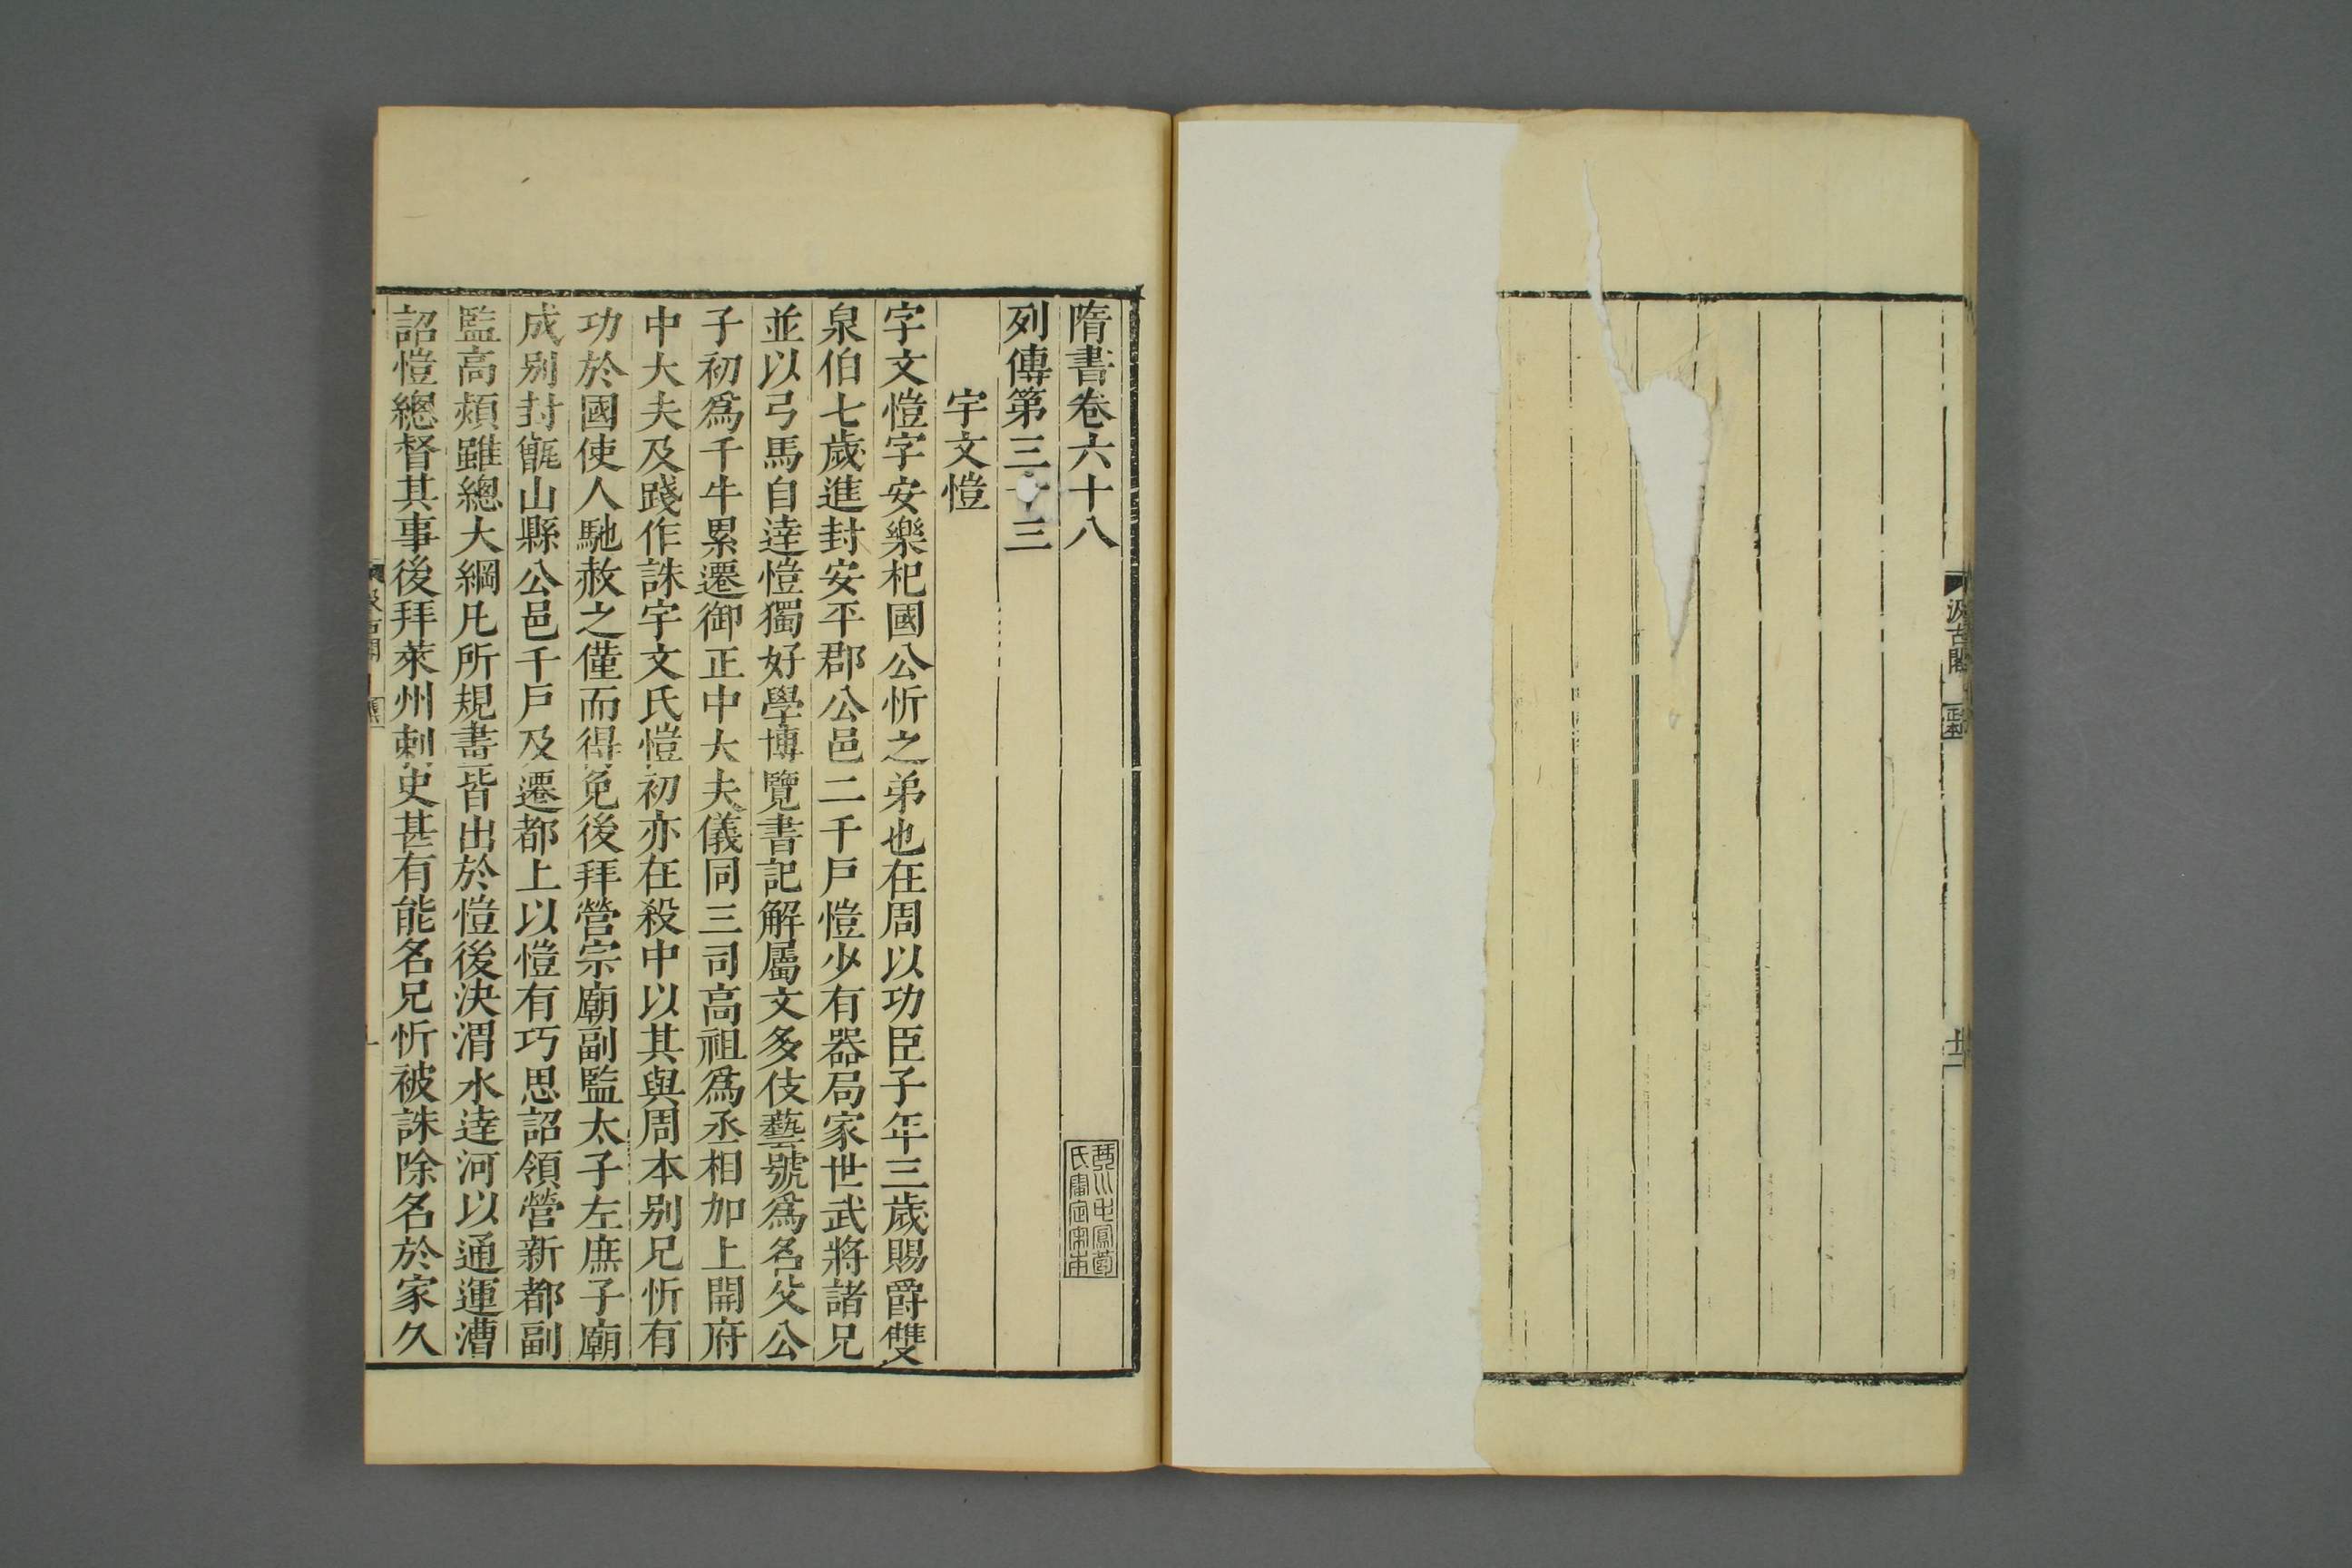 汲古閣
正本
廿二
隋書卷六十八
列傳第三十三
宇文愷
宇文愷字安樂杞國公忻之弟也在周以功臣子年三歲賜爵雙
泉伯七歲進封安平郡公邑二千戶愷少有器局家世武將諸兄
並以弓馬自達愷獨好學博覽書記解屬文多伎藝號爲名父公
子初爲千牛累遷御正中大夫儀同三司高祖爲丞相加上開府
中大夫及踐作誅宇文氏愷初亦在殺中以其與周本别兄忻有
功於國使人馳赦之僅而得免後拜營宗廟副監太子左庶子廟
成别封甑山縣公邑千戶及遷都上以愷有巧思詔領營新都副
監高熲雖總大綱凡所規畫皆出於愷後決渭水達河以通運漕
詔愷總督其事後拜萊州刺史甚有能名兄忻被誅除名於家久